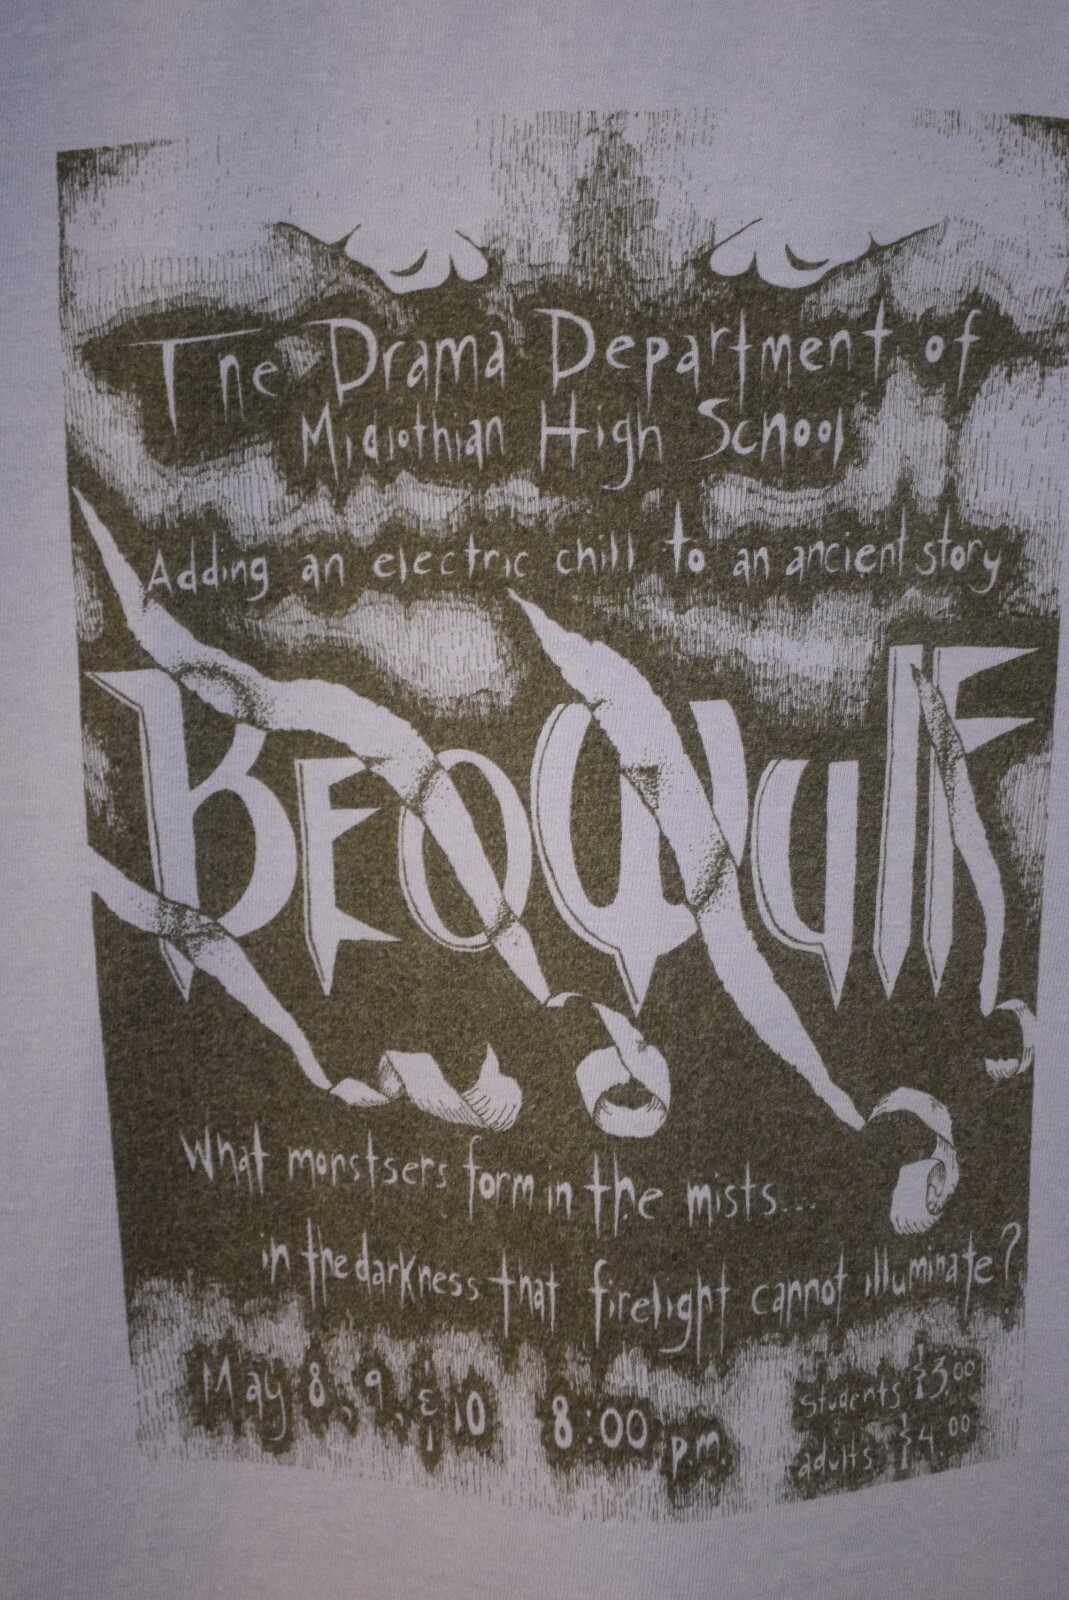 The Drama Department of
Midlothian High School
Adding an electric chill to an ancient story
BEOWULF
What monstsers form in the mists...
in the darkness that firelight cannot illuminate?
May 8, 9, & 10 8:00 p.m.
students $3.00
adults $4.00